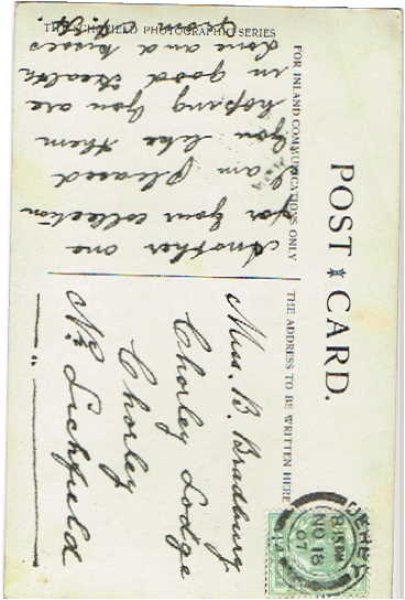 THE SCHOFIELD PHOTOGRAPHIC SERIES
POST CARD.
FOR INLAND COMMUNICATIONS ONLY
THE ADDRESS TO BE WRITTEN HERE
Another one
for your collection
I am pleased
you like them
hoping you are
in good health
Love and kisses
from
Miss. B. Bradbury
Chorley Lodge
Chorley
Nr. Lichfield
DERBY
8.15 PM
NO 18
07